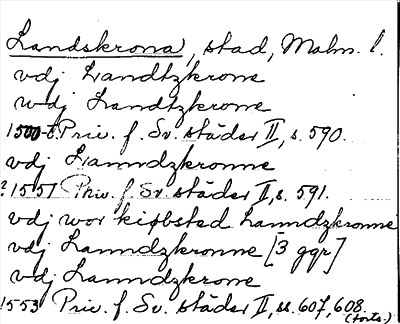 Landskrona, stad, Malm. l.
vdj Landtzkrone
udj Landtzkrone
1500-t. Priv. f. Sv. städer II, s. 590.
vdj Lanndzkronne
? 1551 Priv. f. Sv. städer II, s. 591.
vdj wor kiøbsted Lanndzkronne
vdj Lanndzkronne [3 ggr]
vdj Lanndzkrone
1553 Priv. f. Sv. städer II, ss. 607, 608 (forts.)